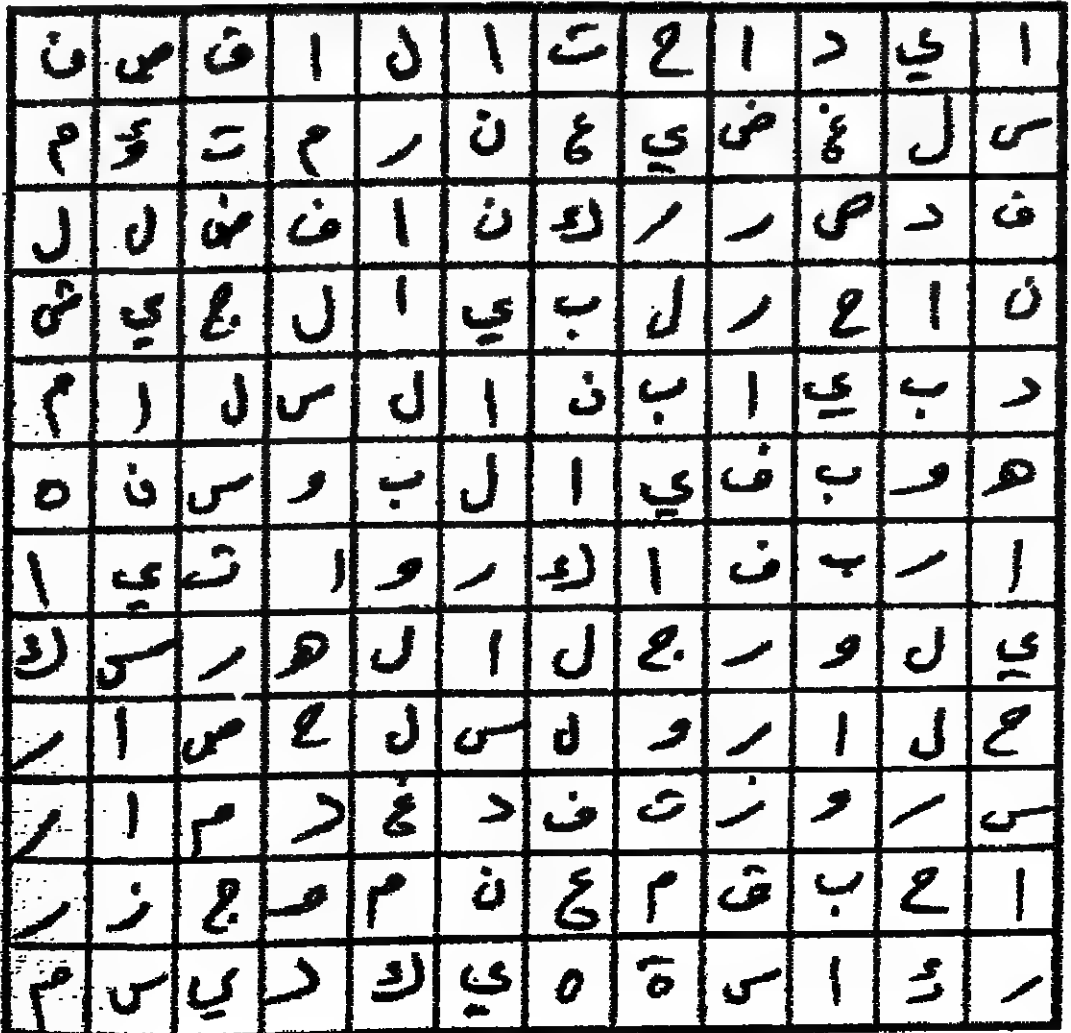 ا ي د ا ح ت ا ل ا ق ص ن
س ل غ ض ي ع ن ر م ت ؤ م
ف د ص ر ر ك ن ا ف ض ل ل
ن ا ح ر ل ب ي ا ل ج ي ش
د ب ي ا ب ن ا ل س ل ا م
ه و ب ف ي ا ل ب و س ن ه
ا ر ب ف ا ك ر و ا ت ي ا
ي ل و ر ج ل ا ل ه ر س ك
ح ل ا ر و ل س ل ح ص ا ر
س ر و ز ت ف د غ د م ا ر
ا ح ب ق م ع ن م و ج ز ر
ر ك ا س ة ه ي ك د ي س م